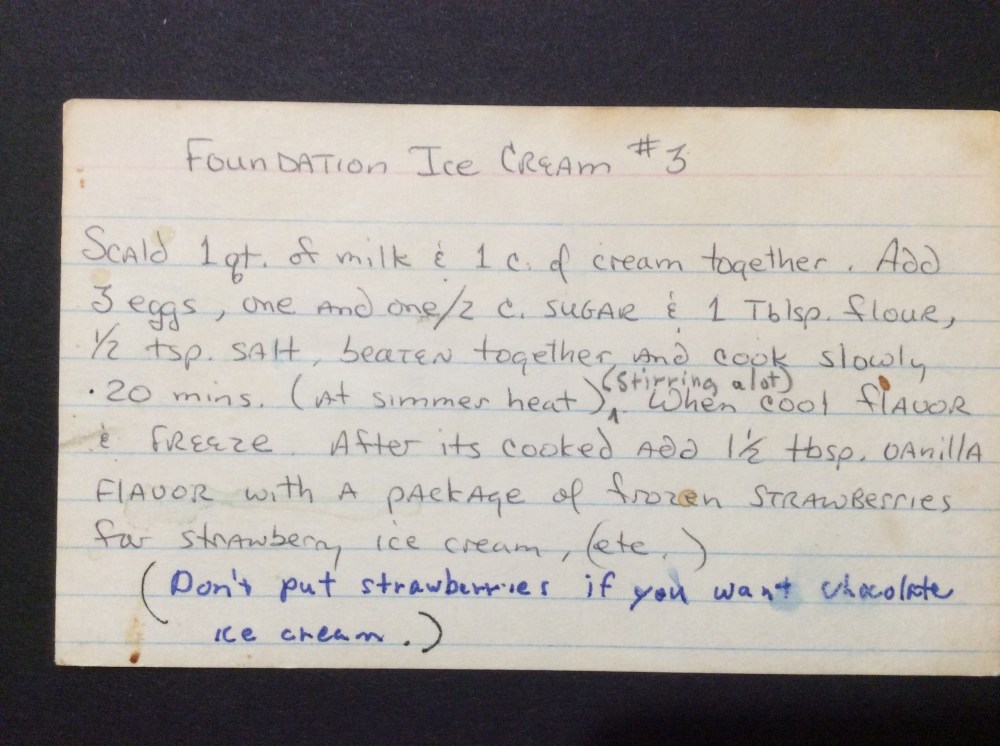 Foundation Ice Cream #3
Scald 1 qt. of milk & 1 c. of cream together. Add
3 eggs, one and one/2 c. sugar & 1 Tblsp. flour,
1/2 tsp. salt, beaten together, and cook slowly
20 mins. (at simmer heat) (stirring alot). When cool flavor
& freeze. After its cooked add 1 1/2 tbsp. vanilla
flavor with a package of frozen strawberries
for strawberry ice cream, (etc.)
(Don't put strawberries if you want chocolate
ice cream.)